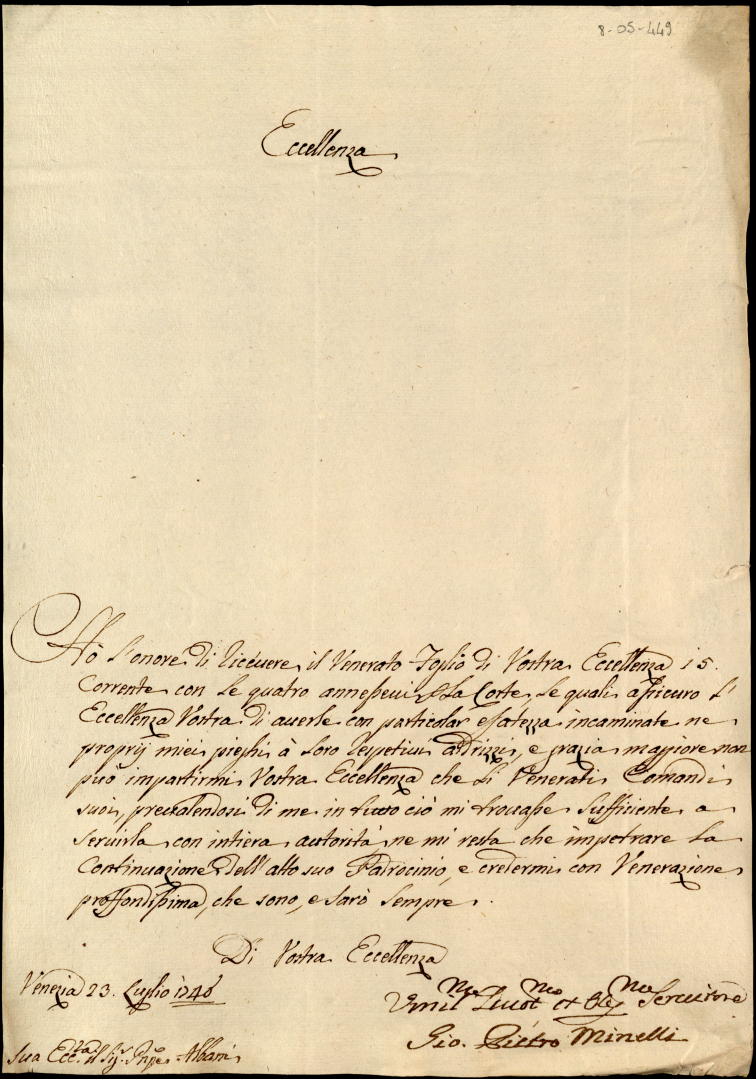 8-05-449
Eccellenza
Hò l'onore di ricevere il Venerato Foglio di Vostra Eccellenza 15.
Corrente con le quatro annessevi p la Corte, le quali assicuro l'
Eccellenza Vostra di averle con particolar esatezza incaminate ne
proprij miei pieghi à loro respetivi adrizzi, e grazia maggiore non
può impartirmi Vostra Eccellenza che li Venerati Comandi
suoi, prevalendosi di me in tutto ciò mi trovasse sufficiente a
servirla con intiera autorità, ne mi resta che impetrare la
Continuazione dell'alto suo Padrocinio, e credermi con Venerazione
proffondissima, che sono, e sarò sempre.
Di Vostra Eccellenza
Venezia 23. Luglio 1746
Umil.mo Devot.mo et Obg.mo Servitore
Gio. Pietro Minelli
Sua Ecc.za il Sig.r Pnpe Albani